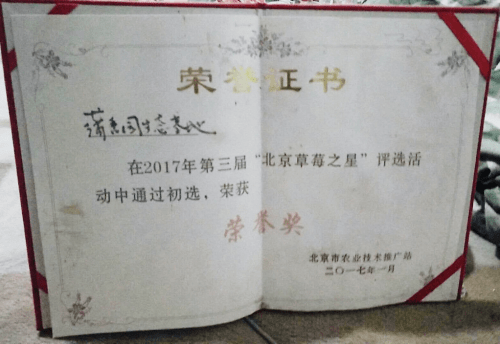 荣誉证书
生态基地
在2017年第三届“北京草莓之星”评选活
动中通过初选，荣获
荣誉奖
北京市农业技术推广站
二〇一七年一月